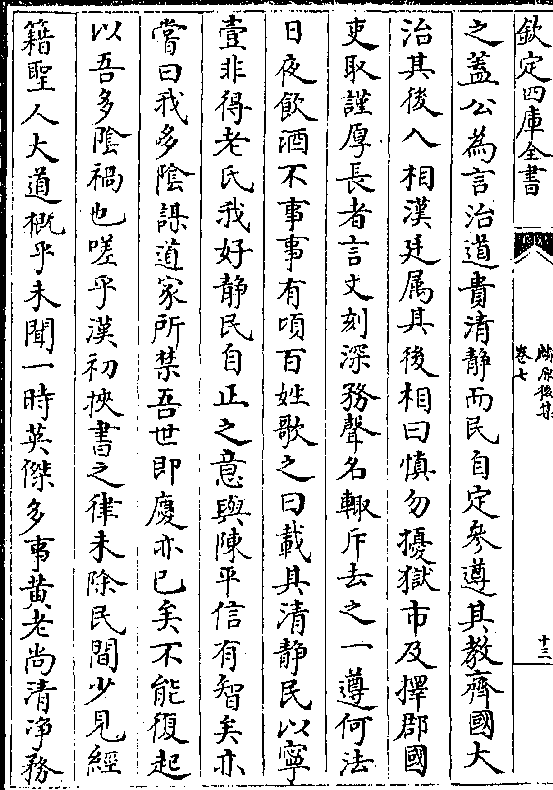 欽定四庫全書
麟原後集
卷七
十三
之蓋公為言治道貴清靜而民自定參遵其教齊國大
治其後入相漢廷属其後相曰慎勿擾獄市及擇郡國
吏取謹厚長者言文刻深務聲名輙斥去之一遵何法
日夜飲酒不事事有頃百姓歌之曰載其清靜民以寧
壹非得老氏我好静民自正之意與陳平信有智矣亦
嘗曰我多陰謀道家所禁吾世即廢亦已矣不能復起
以吾多陰禍也嗟乎漢初挾書之律未除民間少見經
籍聖人大道概乎未聞一時英傑多事黄老尚清净務